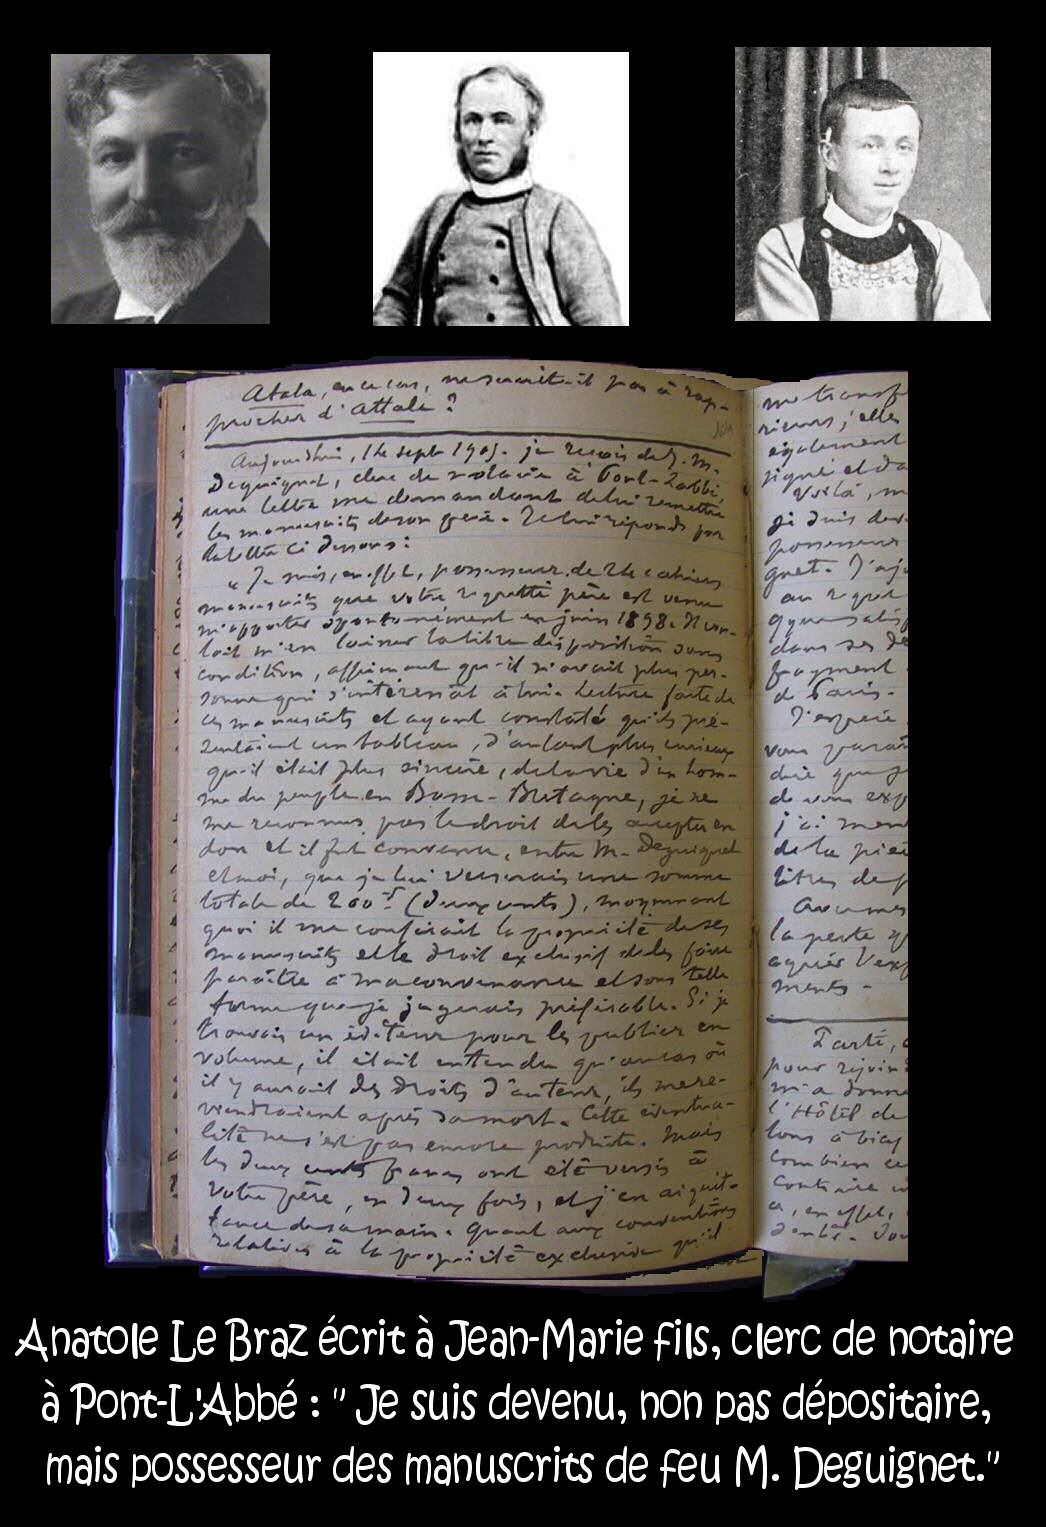 Atala, en ce cas, ne serait-il pas à rap-
procher d'Attale ?
Aujourd'hui, 14 sept 1905. je reçois de J. M.
Deguignet, clerc de notaire à Pont-Labbé,
une lettre me demandant de lui remettre
les manuscrits de son père. Je lui réponds par
la lettre ci dessous :
" Je suis, en effet, possesseur de 24 cahiers
manuscrits que votre regretté père est venu
m'apporter spontanément en juin 1898. Il vou-
lait m'en laisser la libre disposition sans
condition, affirmant qu'il n'avait plus per-
sonne qui s'intéressât à lui. Lecture faite de
ces manuscrits et ayant constaté qu'ils pré-
sentaient un tableau, d'autant plus curieux
qu'il était plus sincère, de la vie d'un hom-
me du peuple en Basse-Bretagne, je ne
me reconnus pas le droit de les accepter en
don et il fut convenu, entre M. Deguignet
et moi, que je lui verserais une somme
totale de 200 f (deux cents), moyennant
quoi il me conférait la propriété de ses
manuscrits et le droit exclusif de les faire
paraître à ma convenance et sous telle
forme que je jugerais préférable. Si je
trouvais un éditeur pour les publier en
volume, il était entendu qu'au cas où
il y aurait des droits d'auteur, ils me re-
viendraient après sa mort. Cette éventua-
lité ne s'est pas encore produite. Mais
les deux cents francs ont été versés à
votre père, en deux fois, et j'en ai quit-
tance de sa main. Quant aux conventions
relatives à la propriété exclusive qu'il
me transf
rieurs, elles
également
signé et da
Voilà, m
je suis dev
possesseur
gnet. J'aj
au
dans ses de
fragment
de Paris.
J'espère
vous
dire que j
de vous exp
j'ai
de la piè
titres de p
la perte
acquis l'exp
ments.
pour rejoin
m'a donné
l'Hôtel de
combien ce
contraire
en effet,
Anatole Le Braz écrit à Jean-Marie fils, clerc de notaire
à Pont-L'Abbé : " Je suis devenu, non pas dépositaire,
mais possesseur des manuscrits de feu M. Deguignet."